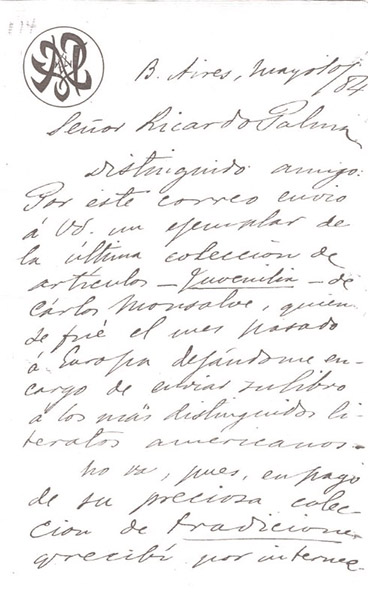 B. Aires, Mayo 10/84
Señor Ricardo Palma
Distinguido amigo:
Por este correo envio
á Vd. un ejemplar de
la última coleccion de
artículos - Juvenilia - de
Cárlos Monsalve, quien
se fué el mes pasado
á Europa dejándome en-
cargo de enviar su libro
á los más distinguidos li-
teratos americanos.-
No va, pues, en pago
de su preciosa colec-
cion de tradiciones
q recibí por interme-